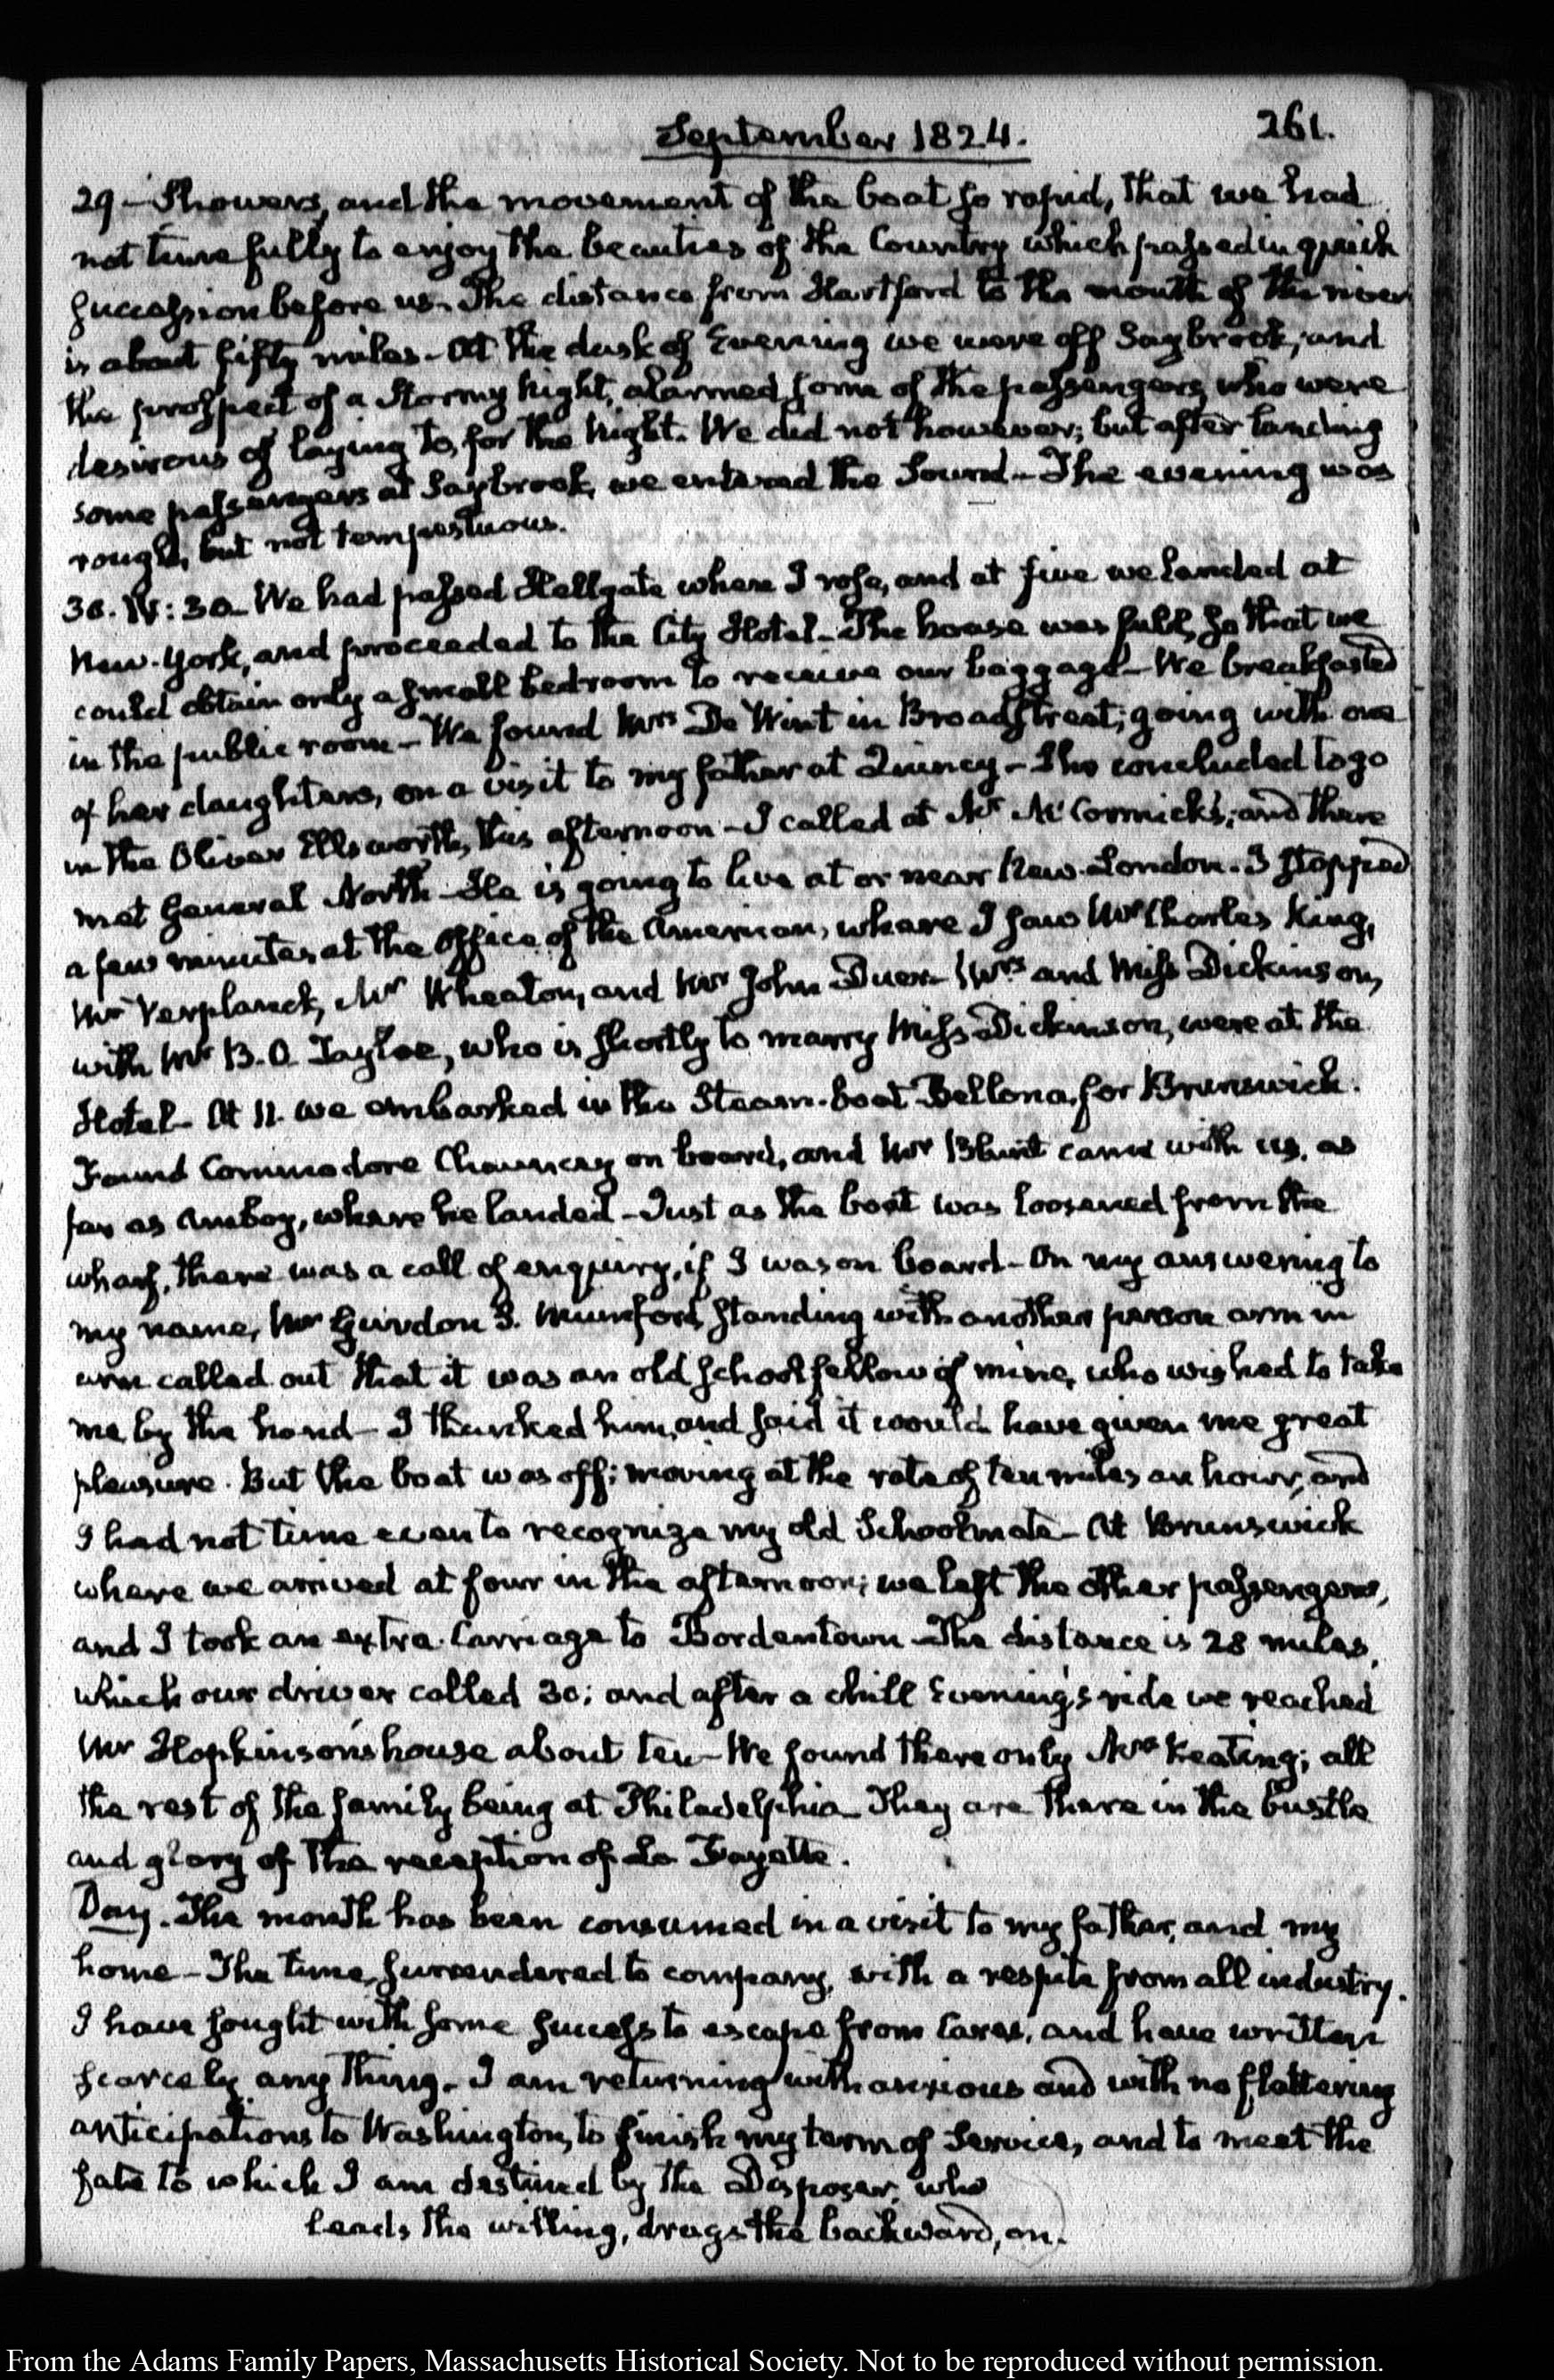 September 1824.
261.
29 – Showers, and the movement of the boat so rapid, that we had
not time fully to enjoy the beauties of the Country which passed in quick
succession before us. The distance from Hartford to the mouth of the river
is about fifty miles – At the dusk of Evening we were off Saybrook, and
the prospect of a Stormy Night, alarmed some of the passengers, who were
desirous of laying to, for the Night. We did not however; but after landing
some passengers at Saybrook, we entered the Sound – The evening was
rough, but not tempestuous.
30. IV: 30. We had passed Hellgate when I rose, and at five we landed at
New-York, and proceeded to the City Hotel – The house was full, so that we
could obtain only a small bedroom to receive our baggage – We breakfasted
in the public room – We found Mrs De Wint in Broadstreet; going with one
of her daughters, on a visit to my father at Quincy – She concluded to go
in the Oliver Ellsworth, this afternoon – I called at Mr McCormick's; and there
met General North – He is going to live at or near New-London. I stopped
a few minutes at the Office of the American, where I saw Mr Charles King,
Mr Verplanck, Mr Wheaton, and Mr John Duer – Mrs and Miss Dickinson,
with Mr B. O. Tayloe, who is shortly to marry Miss Dickinson, were at the
Hotel – At 11. we embarked in the Steam-boat Bellona, for Brunswick.
Found Commodore Chauncey on board, and Mr Blunt came with us, as
far as Amboy, where he landed – Just as the boat was loosened from the
wharf, there was a call of enquiry, if I was on board – On my answering to
my name, Mr Gurdon S. Mumford, standing with another person arm in
arm called out that it was an old schoolfellow of mine, who wished to take
me by the hand – I thanked him, and said it would have given me great
pleasure. But the boat was off; moving at the rate of ten miles an hour, and
I had not time even to recognize my old Schoolmate – At Brunswick
where we arrived at four in the afternoon; we left the other passengers,
and I took an extra-Carriage to Bordentown – The distance is 28 miles,
which our driver called 30; and after a chill Evening's ride we reached
Mr Hopkinson's house about ten – We found there only Mrs Keating; all
the rest of the family being at Philadelphia – They are there in the bustle
and glory of the reception of La Fayette.
Day. The month has been consumed in a visit to my father, and my
home – The time, surrendered to company, with a respite from all industry.
I have sought with some success to escape from Cares, and have written
scarcely any thing. I am returning with anxious and with no flattering
anticipations to Washington, to finish my term of Service, and to meet the
fate to which I am destined by the Disposer, who
leads the willing, drags the backward, on.
From the Adams Family Papers, Massachusetts Historical Society. Not to be reproduced without permission.